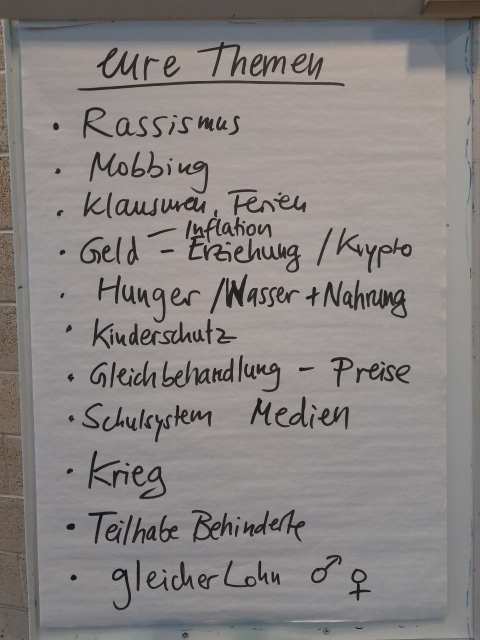 eure Themen
• Rassismus
• Mobbing
• Klausuren, Ferien
– Inflation
• Geld – Erziehung / Krypto
• Hunger / Wasser + Nahrung
• Kinderschutz
• Gleichbehandlung – Preise
• Schulsystem Medien
• Krieg
• Teilhabe Behinderte
• gleicher Lohn ♂ ♀